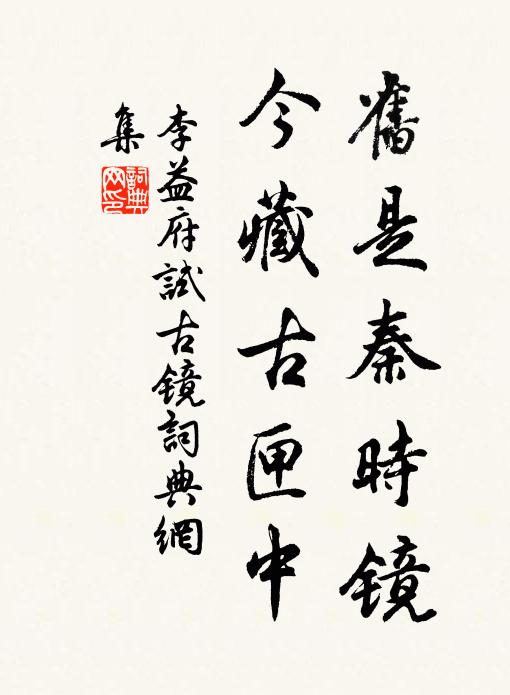 舊是秦時镜
今藏古匣中
李益府試古镜詞典網
集
詞典网印